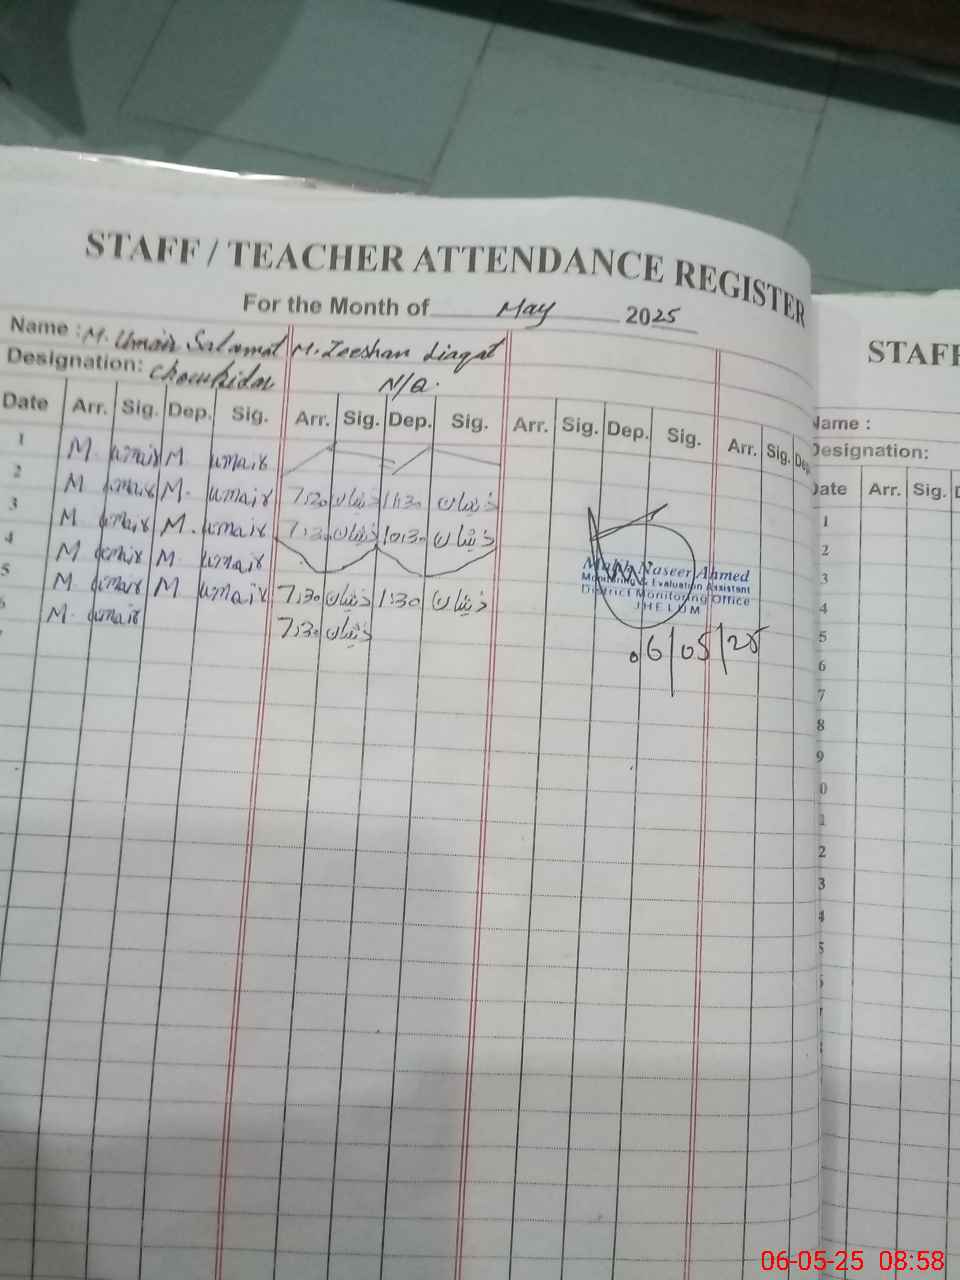 STAFF / TEACHER ATTENDANCE REGISTER
For the Month of May 2025
Name : M. Umair Salamat M. Zeeshan Liaqat
Designation: Chowkidar N/Q.
Date Arr. Sig. Dep. Sig. Arr. Sig. Dep. Sig. Arr. Sig. Dep. Sig. Arr. Sig. Dep
1 M. umair M. umair
2 M umair M. umair 7:30 ذیشان 11:30 ذیشان
3 M umair M. umair 7:30 ذیشان 10:30 ذیشان
4 M umair M. umair
5 M umair M umair 7:30 ذیشان 1:30 ذیشان
M. umair 7:30 ذیشان
Naseer Ahmed
Monitoring & Evaluation Assistant
District Monitoring Office
JHELUM
06/05/25
STAFF
Name :
Designation:
Date Arr. Sig. D
1
2
3
4
5
6
7
8
9
0
1
2
3
4
5
06-05-25 08:58